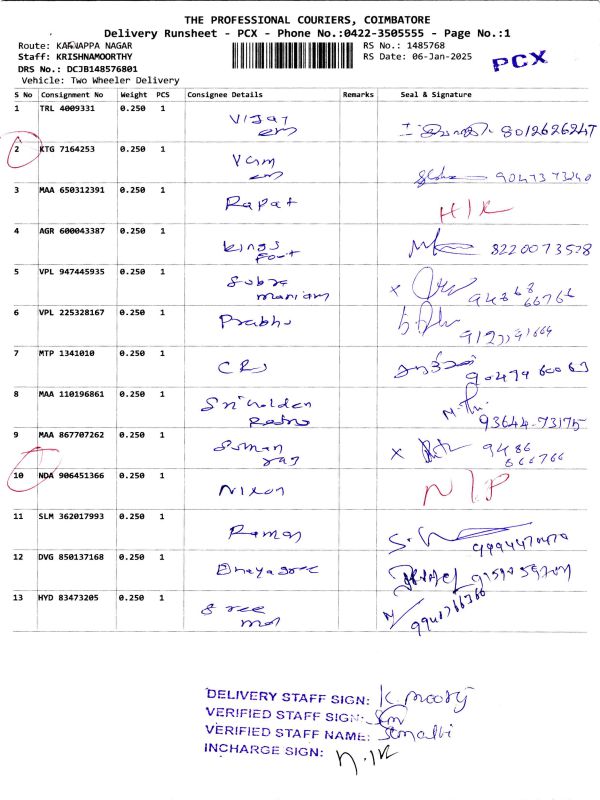 THE PROFESSIONAL COURIERS, COIMBATORE
Delivery Runsheet - PCX - Phone No.:0422-3505555 - Page No.:1
Route: KANNAPPA NAGAR RS No.: 1485768
Staff: KRISHNAMOORTHY RS Date: 06-Jan-2025 PCX
DRS No.: DCJB148576801
Vehicle: Two Wheeler Delivery
S No Consignment No Weight PCS Consignee Details Remarks Seal & Signature
1 TRL 4009331 0.250 1 Vijay em 8012626247
2 KTG 7164253 0.250 1 em 9047373240
3 MAA 650312391 0.250 1 Rapat H/R
4 AGR 600043387 0.250 1 kings Fout 8220073578
5 VPL 947445935 0.250 1 Subra maniam 94868 66766
6 VPL 225328167 0.250 1 Prabhu
7 MTP 1341010 0.250 1 90479 60063
8 MAA 110196861 0.250 1 93644-73175
9 MAA 867707262 0.250 1 9486 666766
10 NDA 906451366 0.250 1 Nixon N/P
11 SLM 362017993 0.250 1 Raman 9994470470
12 DVG 850137168 0.250 1
13 HYD 83473205 0.250 1 Sree
DELIVERY STAFF SIGN: K. moorthy
VERIFIED STAFF SIGN:
VERIFIED STAFF NAME:
INCHARGE SIGN: